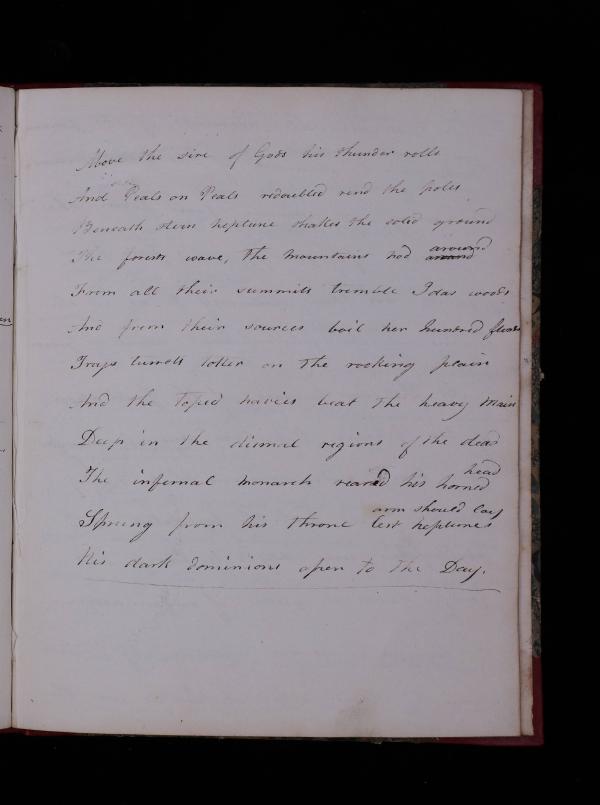 Above the sire of Gods his thunder rolls
And Peals on Peals redoubled rend the poles
Beneath stern neptune shakes the solid ground
The forests wave, the mountains nod around
From all their summits tremble Idas woods
And from their sources boil her hundred floods
Troys turrets totter on the rocking plain
And the navies beat the heavy Main
Deep in the dismal regions of the dead
The infernal monarch reared his horned head
Sprung from his throne lest neptunes arm should lay
His dark dominions open to the Day.